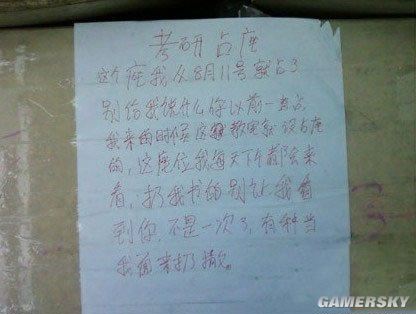 考研占座
这个座我从8月11号就占了
别给我说什么你以前一直占
我来的时候这教室就没占座
的，这座位我每天下午都会来
看，扔我书的别让我看
到你，不是一次了，有种当
我面来扔撒。
GAMERSKY